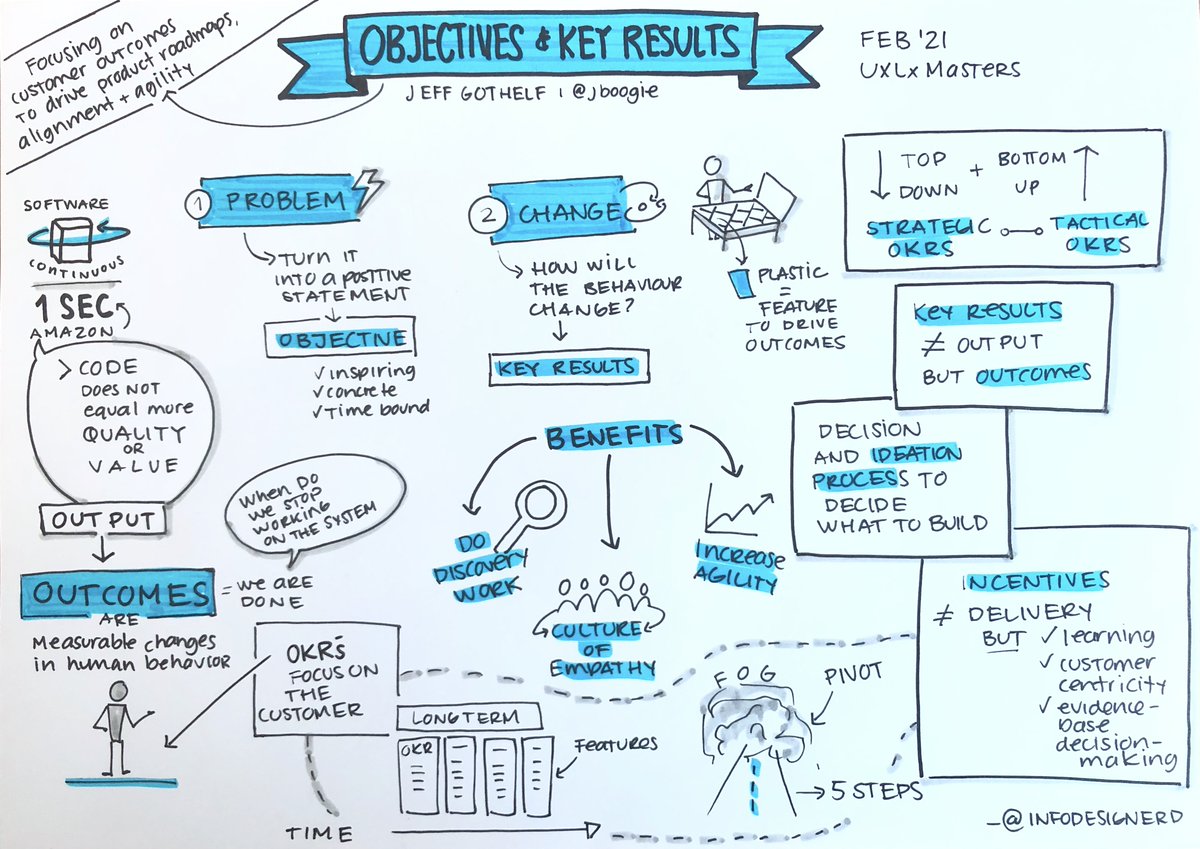 Focusing on
customer outcomes
to drive product roadmaps,
alignment + agility
OBJECTIVES & KEY RESULTS
JEFF GOTHELF | @jboogie
FEB '21
UXLx MASTERS
SOFTWARE
CONTINUOUS
1 SEC
AMAZON
> CODE
DOES NOT
equal more
QUALITY
OR
VALUE
OUTPUT
OUTCOMES
ARE
Measurable changes
in human behavior
= we are
DONE
When DO
we STOP
WORKING
ON THE SYSTEM
1 PROBLEM
TURN IT
INTO A POSITIVE
STATEMENT
OBJECTIVE
✓ inspiring
✓ concrete
✓ Time bound
2 CHANGE
HOW WILL
THE BEHAVIOUR
CHANGE?
KEY RESULTS
PLASTIC
=
FEATURE
TO DRIVE
OUTCOMES
TOP
DOWN
+
BOTTOM
UP
STRATEGIC
OKRS
TACTICAL
OKRS
Key Results
≠ OUTPUT
BUT OUTCOMES
DECISION
AND IDEATION
PROCESS TO
DECIDE
WHAT TO BUILD
INCENTIVES
≠ DELIVERY
BUT ✓ learning
✓ customer
centricity
✓ evidence-
base
decision-
making
BENEFITS
DO
Discovery
WORK
CULTURE
OF
EMPATHY
Increase
AGILITY
OKR's
FOCUS ON
THE
CUSTOMER
LONGTERM
OKR
Features
TIME
FOG
PIVOT
5 STEPS
_@INFODESIGNERD